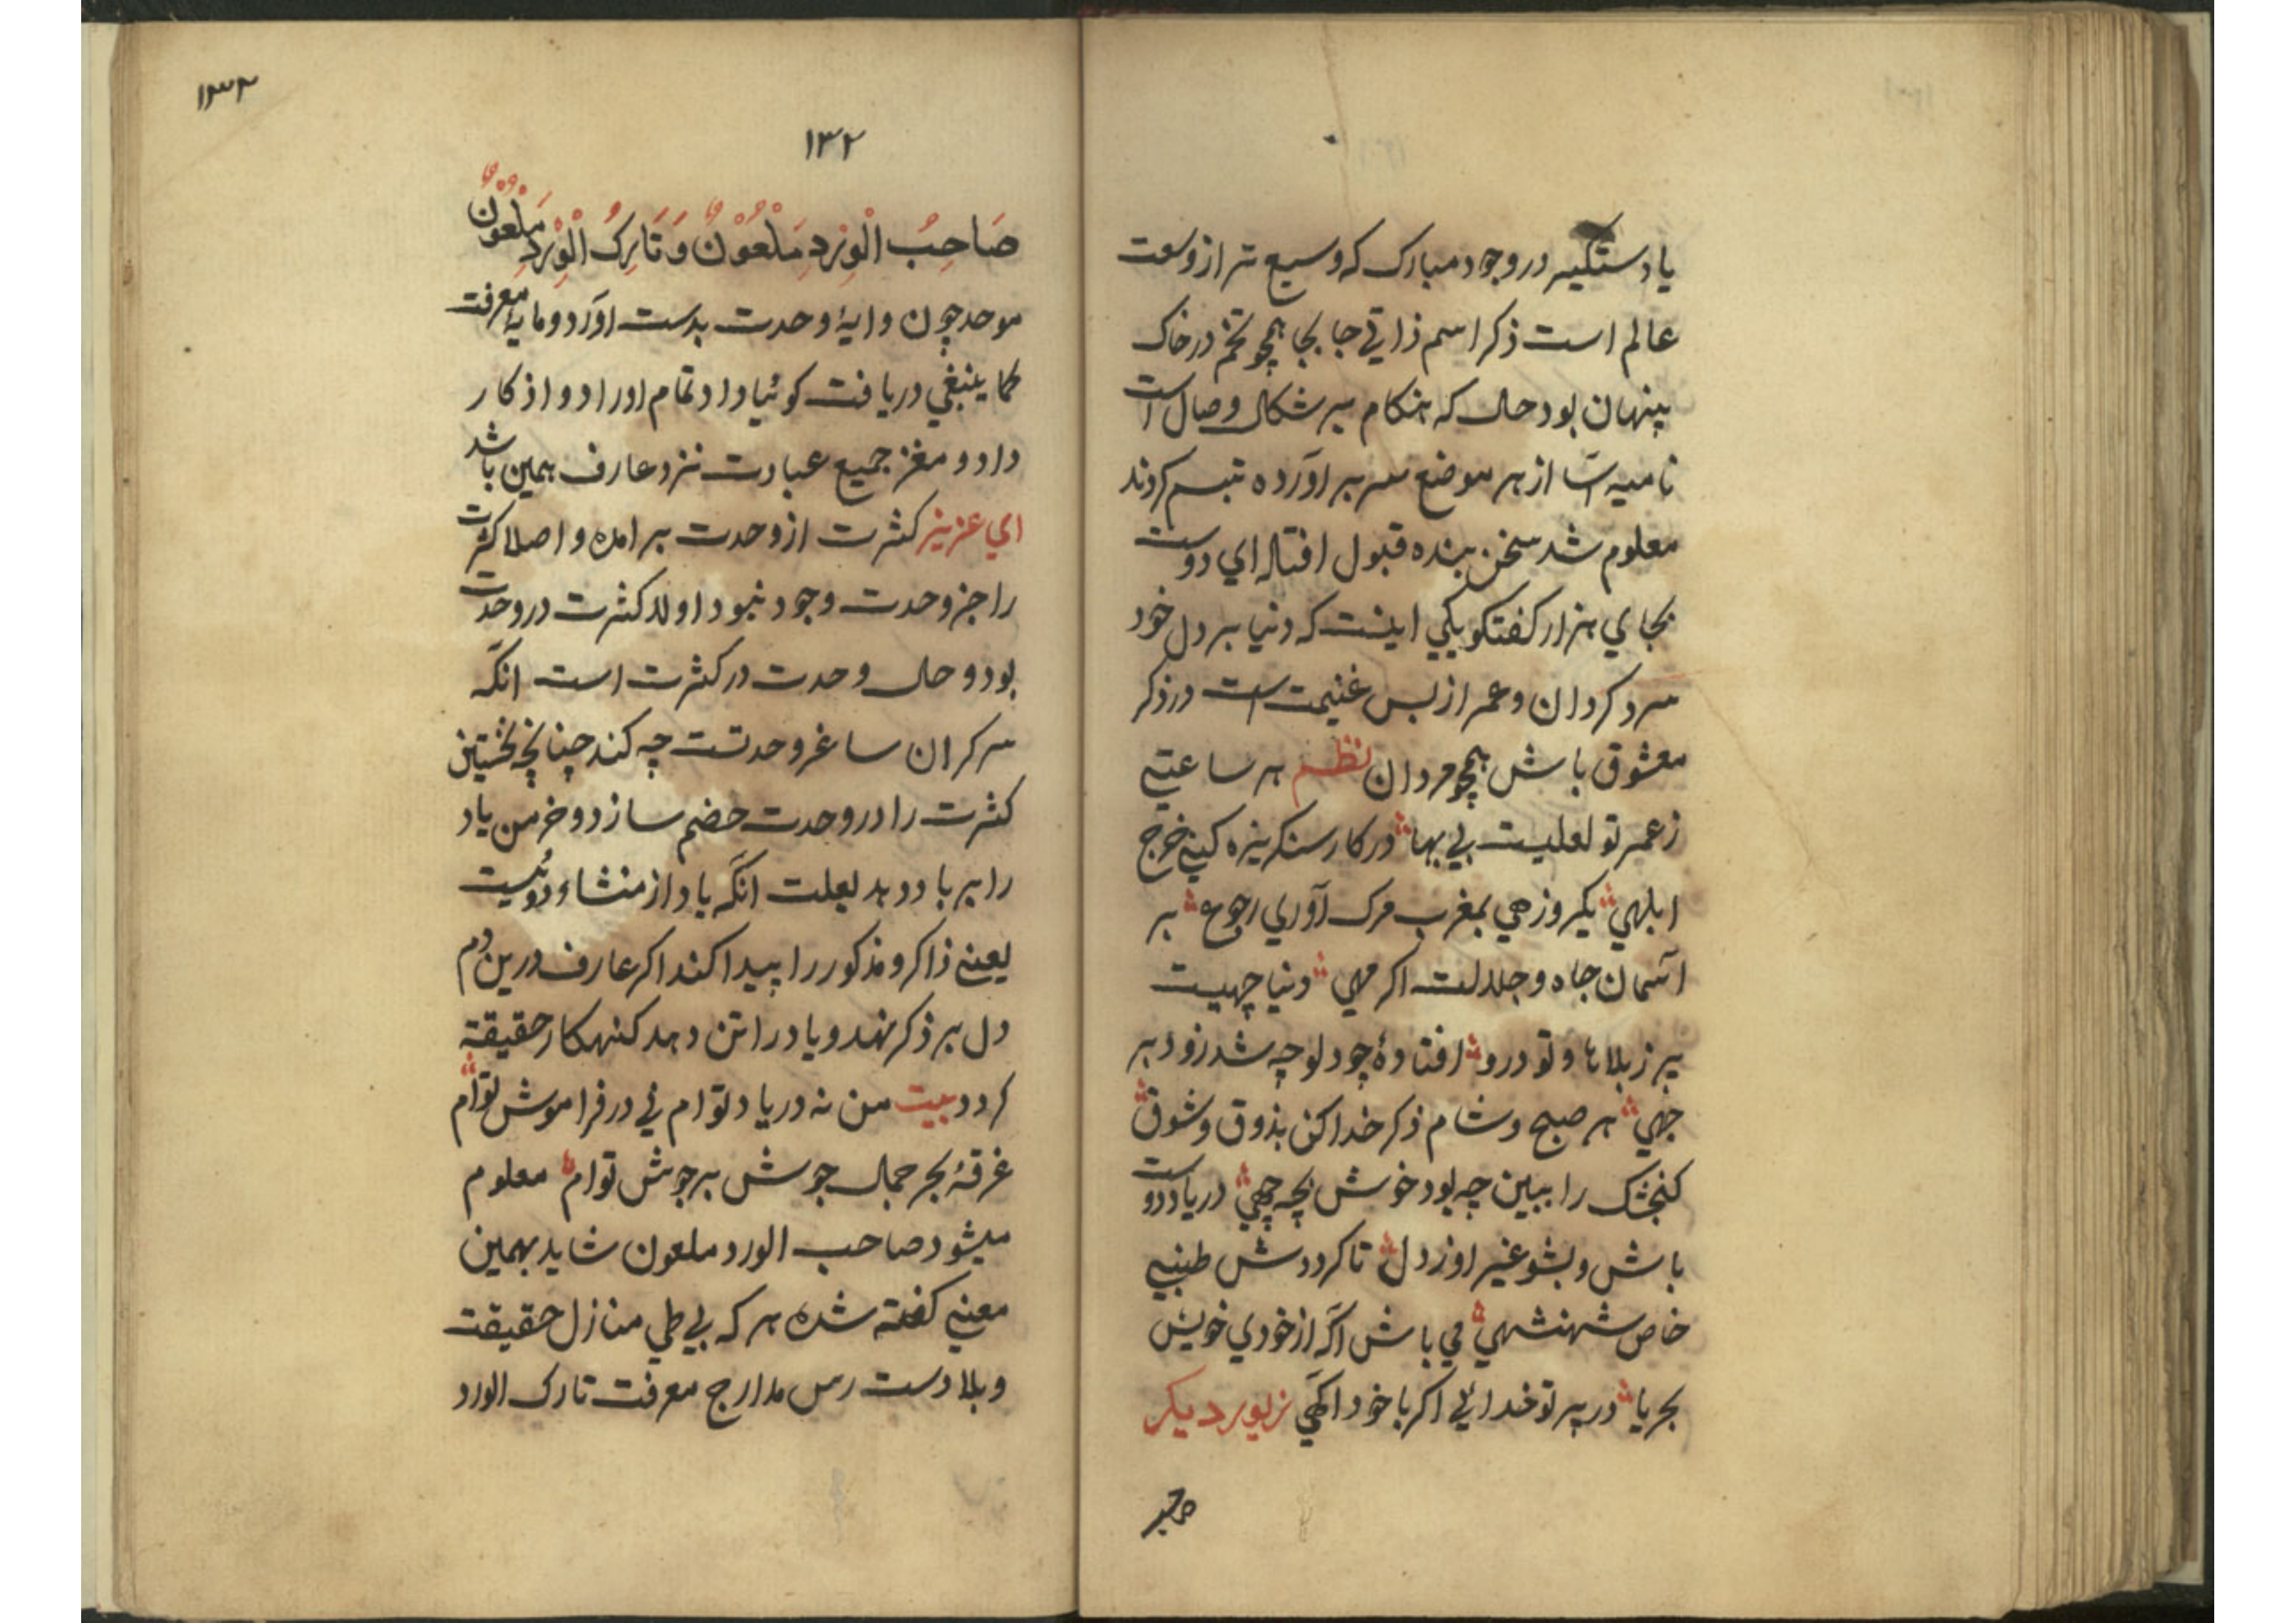 یا دستکیر در وجود مبارک که وسیع تر از وسعت
عالم است ذکر اسم ذاتي جا بجا همچو تخم در خاک
پنهان بود حال که هنکام سر وصال است
نامیه از هر موضع سر بر اورده تبسم کردند
معلوم شد سخن بنده قبول افتاد اي دوست
بجاي هزار کفتکو یکي اینست که دنیا بر دل خود
سرد کردان و عمر از بس غنیمت است در ذکر
معشوق باش همچو مردان نظم هر ساعتي
ز عمر تو لعلیست بي بها در کار سنکریزه کني خرج
ابلهي یکروز هي بمغرب مرک آوري رجوع بر
آسمان جاه و جلالت اکر مهي دنیا چهیست
پر ز بلاها و تو درو افتادۀ چو دلو چه شد زود بر
جهي هر صبح و شام ذکر خدا کن بذوق و شوق
کنجشک را ببین چه بود خوش بچه چهي در یاد دوست
باش و بشو غیر او ز دل تا کرددش
خاص شهنشهي مي باش آکه از خودي خویش
بحریا در بر تو خدائي اکر با خود اکهي زیور دیکر
صاحب
١٣٢
١٣٢
صَاحِبُ الْوِرْدِ مَلْعُوْنٌ وَ تَارِکُ الْوِرْدِ مَلْعُوْنٌ
موحد چون دایۀ وحدت بدست اورد و مایۀ معرفت
کما ینبغي دریافت کوئیا داد تمام اوراد و اذکار
داد و مغز جمیع عبادت نزد عارف همین باشد
اي عزیز کثرت از وحدت بر امده و اصلا کثرت
را جز وحدت وجود نبود اولا کثرت در وحدت
بود و حال وحدت در کثرت است انکه
سرکران ساغر وحدتست چه کند چنانچه نخستین
کثرت را در وحدت هضم سازد و خرمن یاد
را بر باد دهد لعلت انکه یاد از منشاء دوئیست
یعني ذاکر و مذکور را پیدا کند اکر عارف درین دم
دل بر ذکر نهد و یاد را تن دهد کنهکار حقیقة
کردد بیت من نه در یاد توام ني در فراموش توام
غرقۀ بحر جمال جوش بر جوش توام معلوم
میشود صاحب الورد ملعون شاید بهمین
معني کفته شده هر که بي طي منازل حقیقت
و بلا دست رس مدارج معرفت تارک الورد